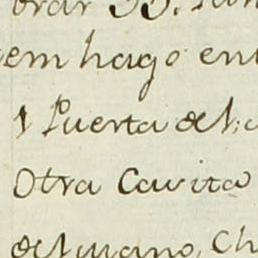 brar 33.
em hago ent
1 Puerta del
Otra Cavita
del mano, Ch